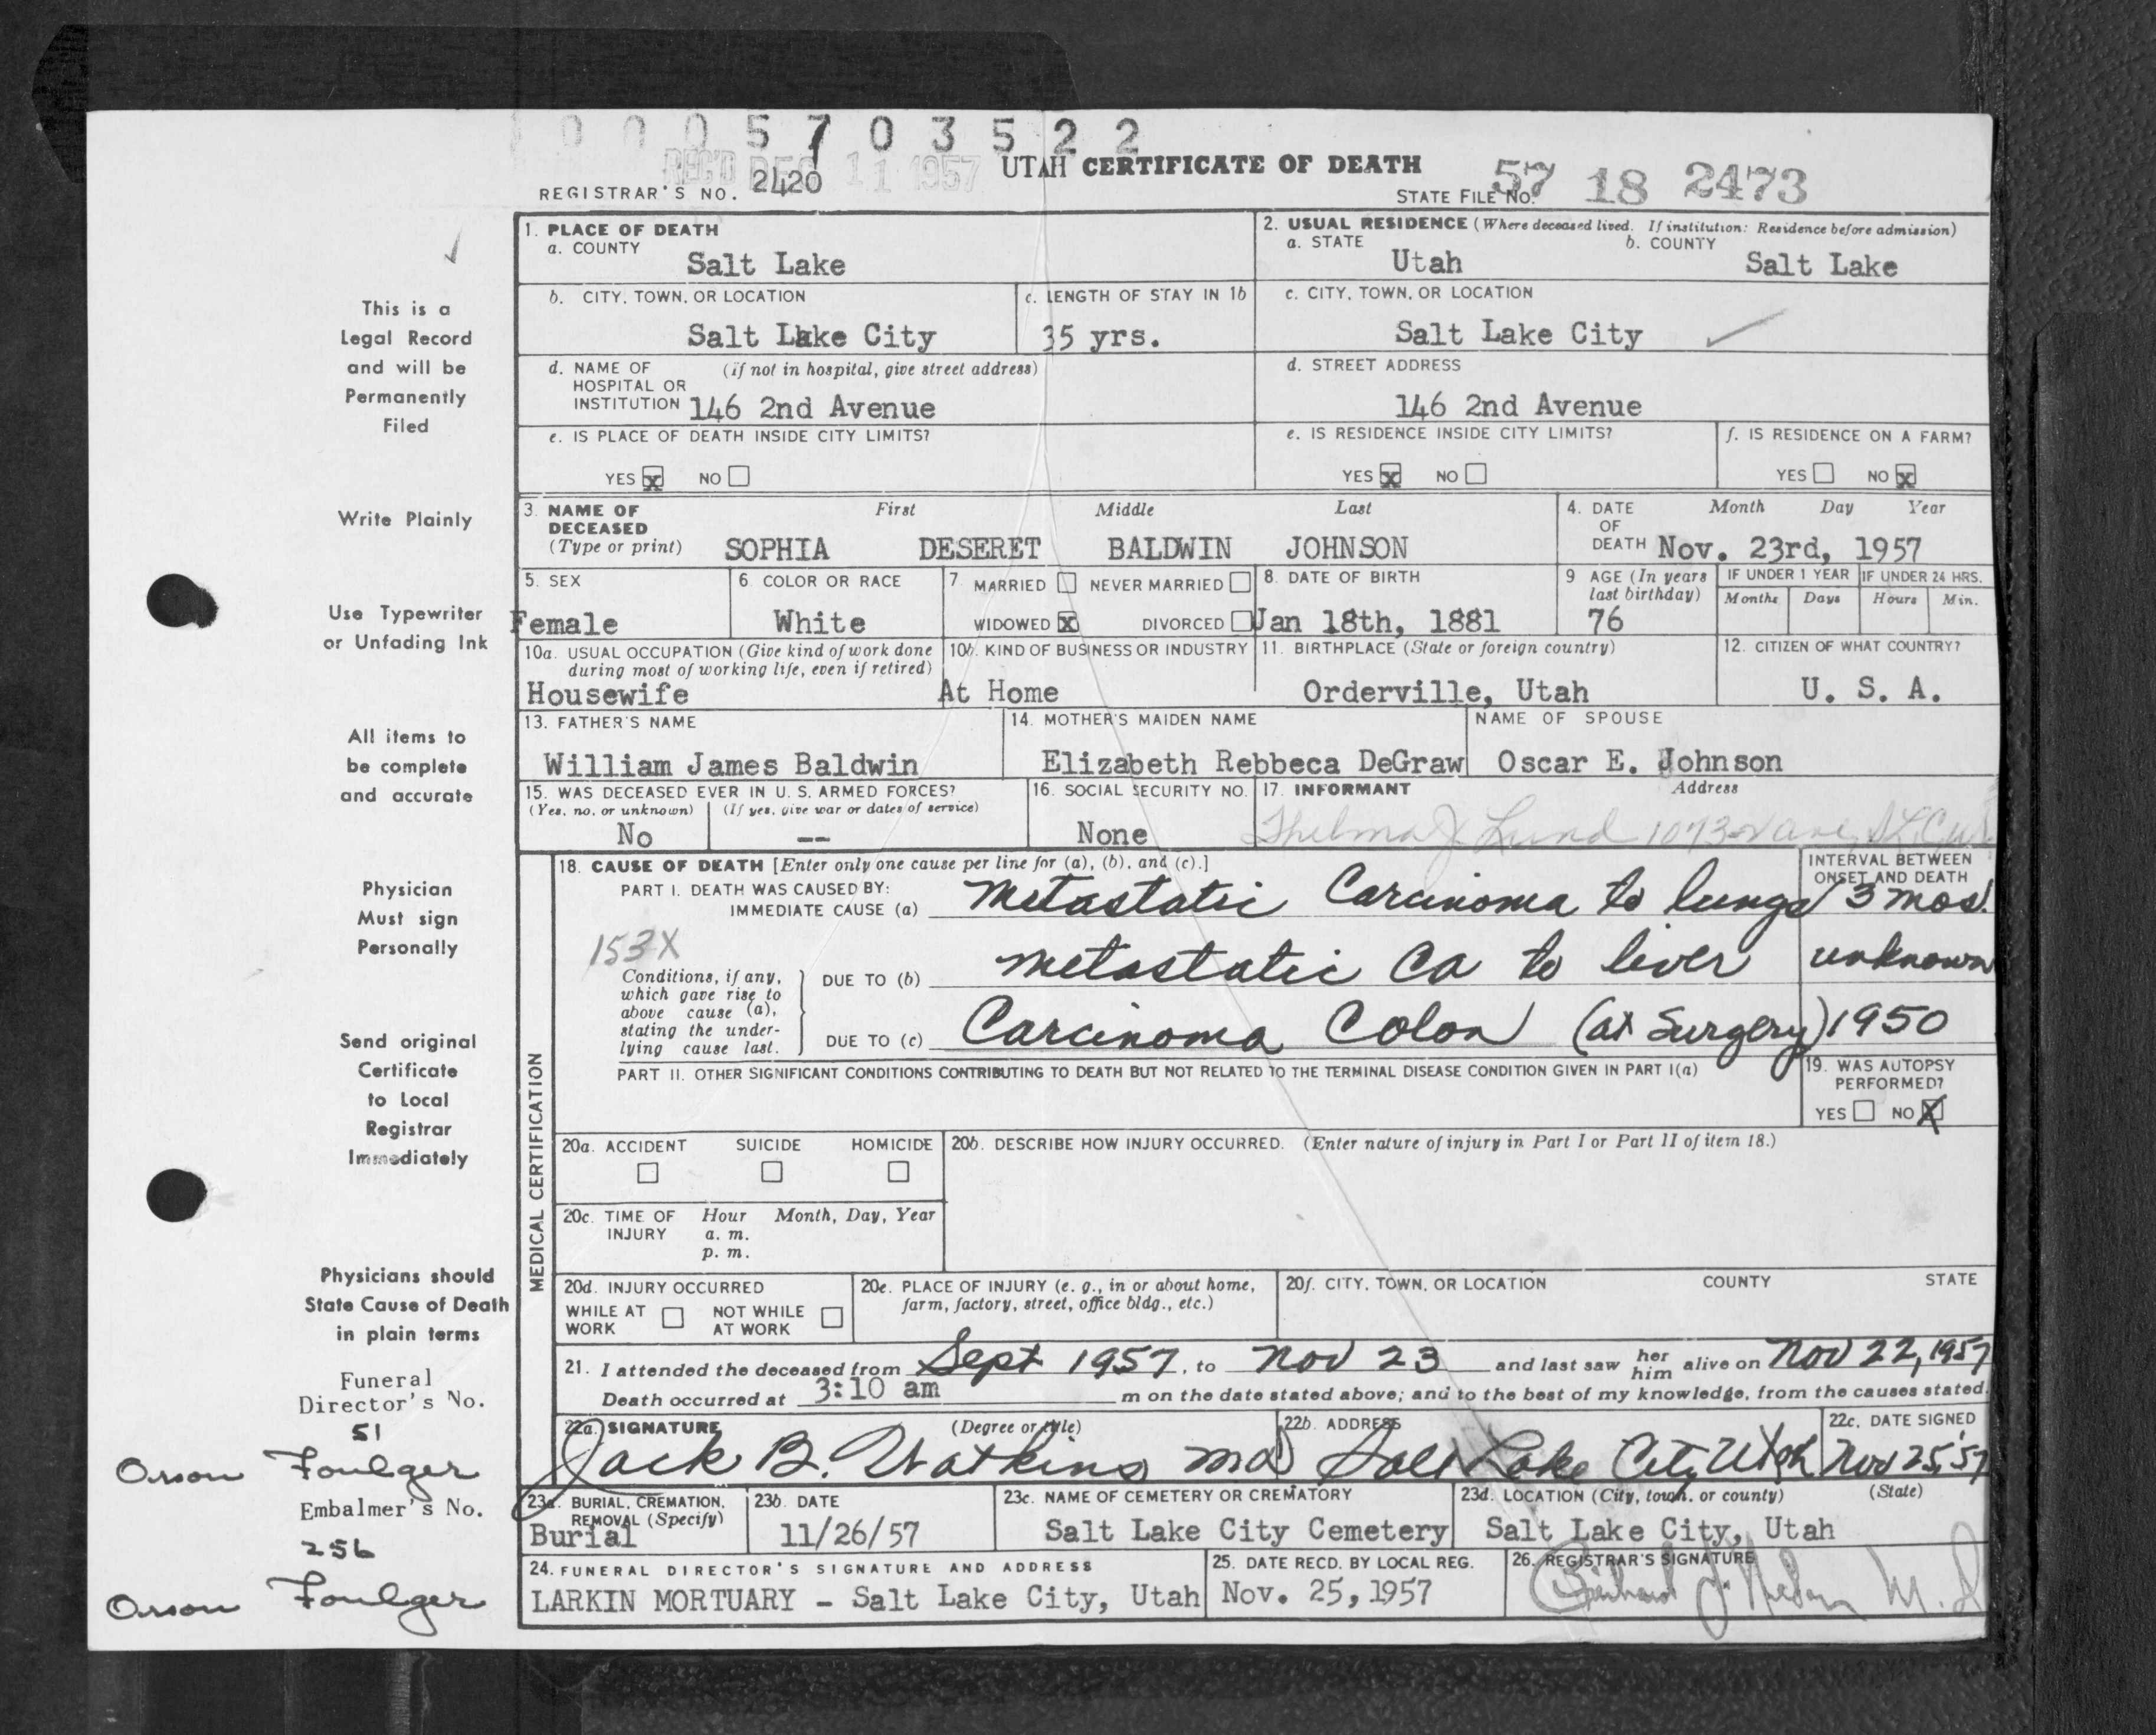 0 0 0 5 7 0 3 5 2 2
REC'D DEC 11 1957
UTAH CERTIFICATE OF DEATH
REGISTRAR'S NO. 2420
STATE FILE NO. 57 18 2473
This is a
Legal Record
and will be
Permanently
Filed
Write Plainly
Use Typewriter
or Unfading Ink
All items to
be complete
and accurate
Physician
Must sign
Personally
Send original
Certificate
to Local
Registrar
Immediately
Physicians should
State Cause of Death
in plain terms
Funeral
Director's No.
51
Orson Foulger
Embalmer's No.
256
Orson Foulger
1. PLACE OF DEATH
a. COUNTY
Salt Lake
2. USUAL RESIDENCE (Where deceased lived. If institution: Residence before admission)
a. STATE
Utah
b. COUNTY
Salt Lake
b. CITY, TOWN, OR LOCATION
Salt Lake City
c. LENGTH OF STAY IN 1b
35 yrs.
c. CITY, TOWN, OR LOCATION
Salt Lake City
d. NAME OF (if not in hospital, give street address)
HOSPITAL OR
INSTITUTION 146 2nd Avenue
d. STREET ADDRESS
146 2nd Avenue
e. IS PLACE OF DEATH INSIDE CITY LIMITS?
YES x NO
e. IS RESIDENCE INSIDE CITY LIMITS?
YES x NO
f. IS RESIDENCE ON A FARM?
YES NO x
3. NAME OF DECEASED (Type or print)
First Middle Last
SOPHIA DESERET BALDWIN JOHNSON
4. DATE OF DEATH
Month Day Year
Nov. 23rd, 1957
5. SEX
Female
6. COLOR OR RACE
White
7. MARRIED NEVER MARRIED
WIDOWED x DIVORCED
8. DATE OF BIRTH
Jan 18th, 1881
9 AGE (In years
last birthday)
76
IF UNDER 1 YEAR
Months Days
IF UNDER 24 HRS.
Hours Min.
10a. USUAL OCCUPATION (Give kind of work done
during most of working life, even if retired)
Housewife
10b. KIND OF BUSINESS OR INDUSTRY
At Home
11. BIRTHPLACE (State or foreign country)
Orderville, Utah
12. CITIZEN OF WHAT COUNTRY?
U. S. A.
13. FATHER'S NAME
William James Baldwin
14. MOTHER'S MAIDEN NAME
Elizabeth Rebbeca DeGraw
NAME OF SPOUSE
Oscar E. Johnson
15. WAS DECEASED EVER IN U. S. ARMED FORCES?
(Yes, no, or unknown) (If yes, give war or dates of service)
No --
16. SOCIAL SECURITY NO.
None
17. INFORMANT Address
Thelma J Lund 1073
18. CAUSE OF DEATH [Enter only one cause per line for (a), (b), and (c).]
INTERVAL BETWEEN
ONSET AND DEATH
PART I. DEATH WAS CAUSED BY:
IMMEDIATE CAUSE (a) Metastatic Carcinoma to lungs 3 mos.
153X
Conditions, if any,
which gave rise to
above cause (a),
stating the under-
lying cause last.
DUE TO (b) metastatic Ca to liver unknown
DUE TO (c) Carcinoma Colon (at Surgery) 1950
PART II. OTHER SIGNIFICANT CONDITIONS CONTRIBUTING TO DEATH BUT NOT RELATED TO THE TERMINAL DISEASE CONDITION GIVEN IN PART I(a)
19. WAS AUTOPSY
PERFORMED?
YES NO X
MEDICAL CERTIFICATION
20a. ACCIDENT SUICIDE HOMICIDE
20b. DESCRIBE HOW INJURY OCCURRED. (Enter nature of injury in Part I or Part II of item 18.)
20c. TIME OF Hour Month, Day, Year
INJURY a. m.
p. m.
20d. INJURY OCCURRED
WHILE AT WORK NOT WHILE AT WORK
20e. PLACE OF INJURY (e. g., in or about home,
farm, factory, street, office bldg., etc.)
20f. CITY, TOWN, OR LOCATION COUNTY STATE
21. I attended the deceased from Sept 1957, to Nov 23 and last saw her him alive on Nov 22, 1957
Death occurred at 3:10 am m on the date stated above; and to the best of my knowledge, from the causes stated.
22a. SIGNATURE (Degree or title)
Jack B. Watkins md
22b. ADDRESS
Salt Lake City Utah
22c. DATE SIGNED
Nov 25, '57
23a. BURIAL, CREMATION,
REMOVAL (Specify)
Burial
23b. DATE
11/26/57
23c. NAME OF CEMETERY OR CREMATORY
Salt Lake City Cemetery
23d. LOCATION (City, town, or county) (State)
Salt Lake City, Utah
24. FUNERAL DIRECTOR'S SIGNATURE AND ADDRESS
LARKIN MORTUARY - Salt Lake City, Utah
25. DATE RECD. BY LOCAL REG.
Nov. 25, 1957
26. REGISTRAR'S SIGNATURE
M.D